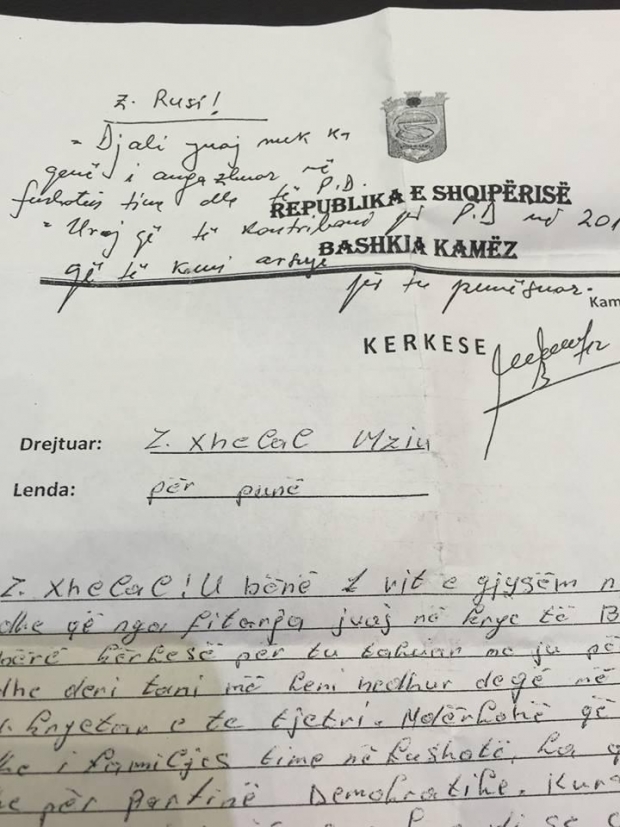 Z. Rusi!
- Djali juaj nuk ka
qenë i angazhuar në
fushatën time dhe të P.D.
REPUBLIKA E SHQIPËRISË
- Uroj që të kontribuoni për P.D në 201
BASHKIA KAMËZ
që të kemi arsye
për tu punësuar.
Kam
KERKESE
Drejtuar: Z. Xhelal Mziu
Lenda: për punë
Z. Xhelal! U bënë 2 vit e gjysëm n
dhe që nga fitorja juaj në krye të B
bërë kërkesë për tu takuar me ju pë
dhe deri tani më keni hedhur degë në
kryetar e te tjetri. Ndërkohë që
dhe i familjes time në fushatë, ka q
he për Partinë Demokratike. Kurs